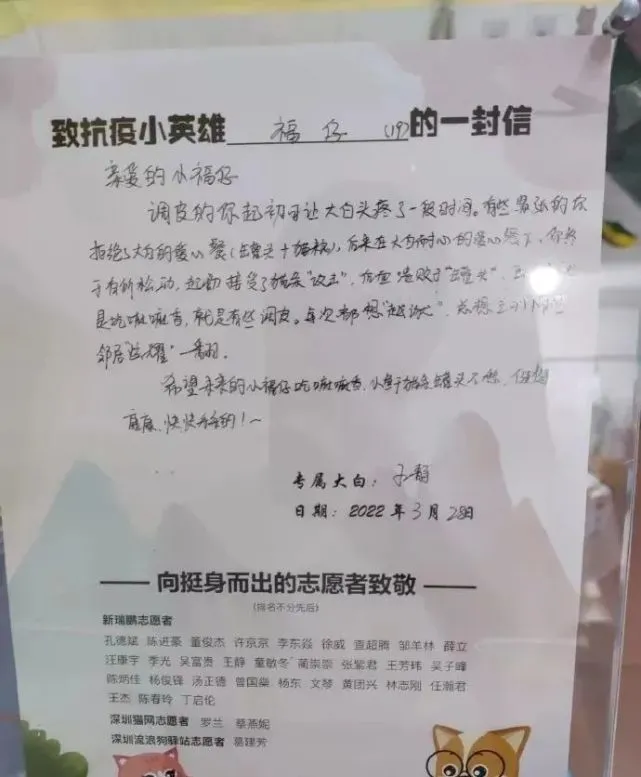 致抗疫小英雄 福仔 (19) 的一封信
亲爱的小福仔
调皮的你起初可让大白头疼了一段时间。有些紧张的你
拒绝了大白的爱心餐(罐头+猫粮), 后来在大白耐心的爱心餐下, 你终
于有所松动, 起初接受了猫条"攻击", 后面落败于"罐头",
是吃嘛嘛香, 就是有些调皮。每次都想"越狱", 总想
邻居"炫耀"一翻。
希望未来的小福仔吃嘛嘛香, 小鱼干猫条罐头不愁, 健健
康康、快快乐乐的!~
专属大白: 子静
日期: 2022 年 3 月 28日
向挺身而出的志愿者致敬
(排名不分先后)
新瑞鹏志愿者
孔德斌 陈进豪 董俊杰 许京京 李东焱 徐威 查超腾 邹羊林 薛立
汪康宇 季光 吴富贵 王静 童敏冬 蔺崇崇 张紫君 王芳玮 吴子峰
陈炳佳 杨俊锋 汤正德 曾国燊 杨东 文琴 黄团兴 林志刚 任瀚君
王杰 陈春玲 丁启伦
深圳猫网志愿者 罗兰 蔡燕妮
深圳流浪狗驿站志愿者 葛建芳